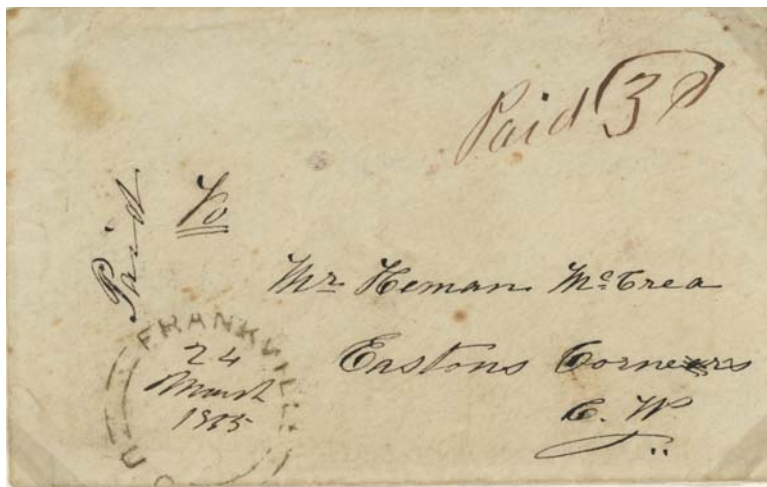 Paid 3d
Paid
To
Mr. Heman McCrea
Eastons Corners
C. W.
FRANKVILLE
24
March
1855